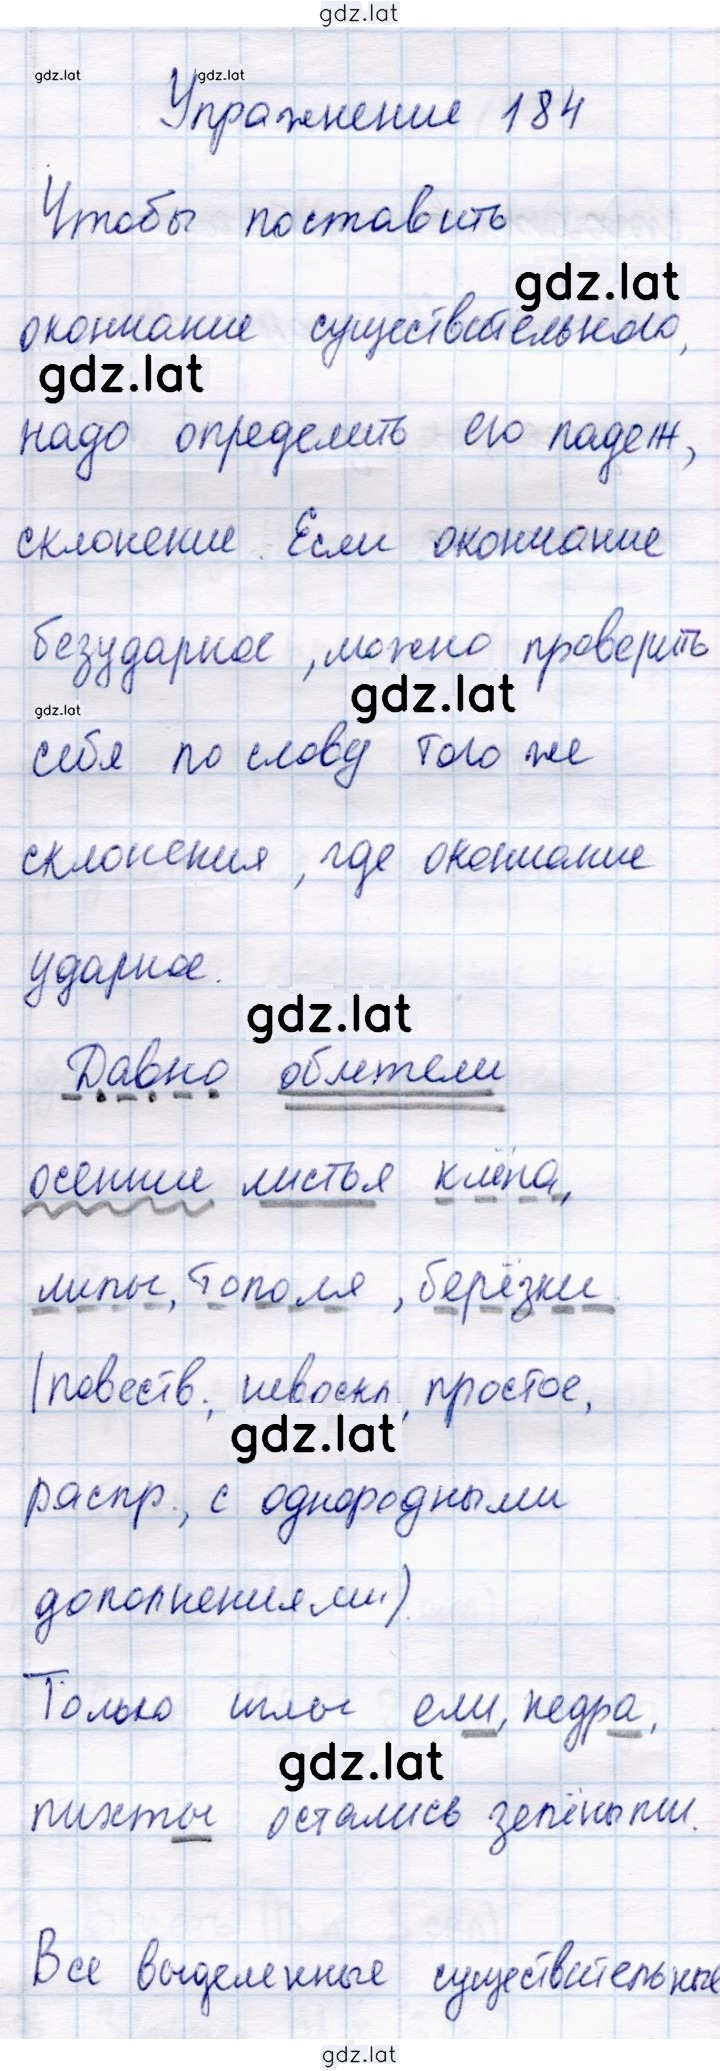 gdz.lat
gdz.lat gdz.lat
Упражнение 184
Чтобы поставить
gdz.lat
окончание существительного,
gdz.lat
надо определить его падеж,
склонение. Если окончание
безударное, можно проверить
gdz.lat
gdz.lat
себя по слову того же
склонения, где окончание
ударное.
gdz.lat
Давно облетели
осенние листья клёна,
липы, тополя, берёзки.
(повеств., невоскл., простое,
gdz.lat
распр., с однородными
дополнениями).
Только иглы ели, кедра,
gdz.lat
пихты остались зелёными.
Все выделенные существительные
gdz.lat